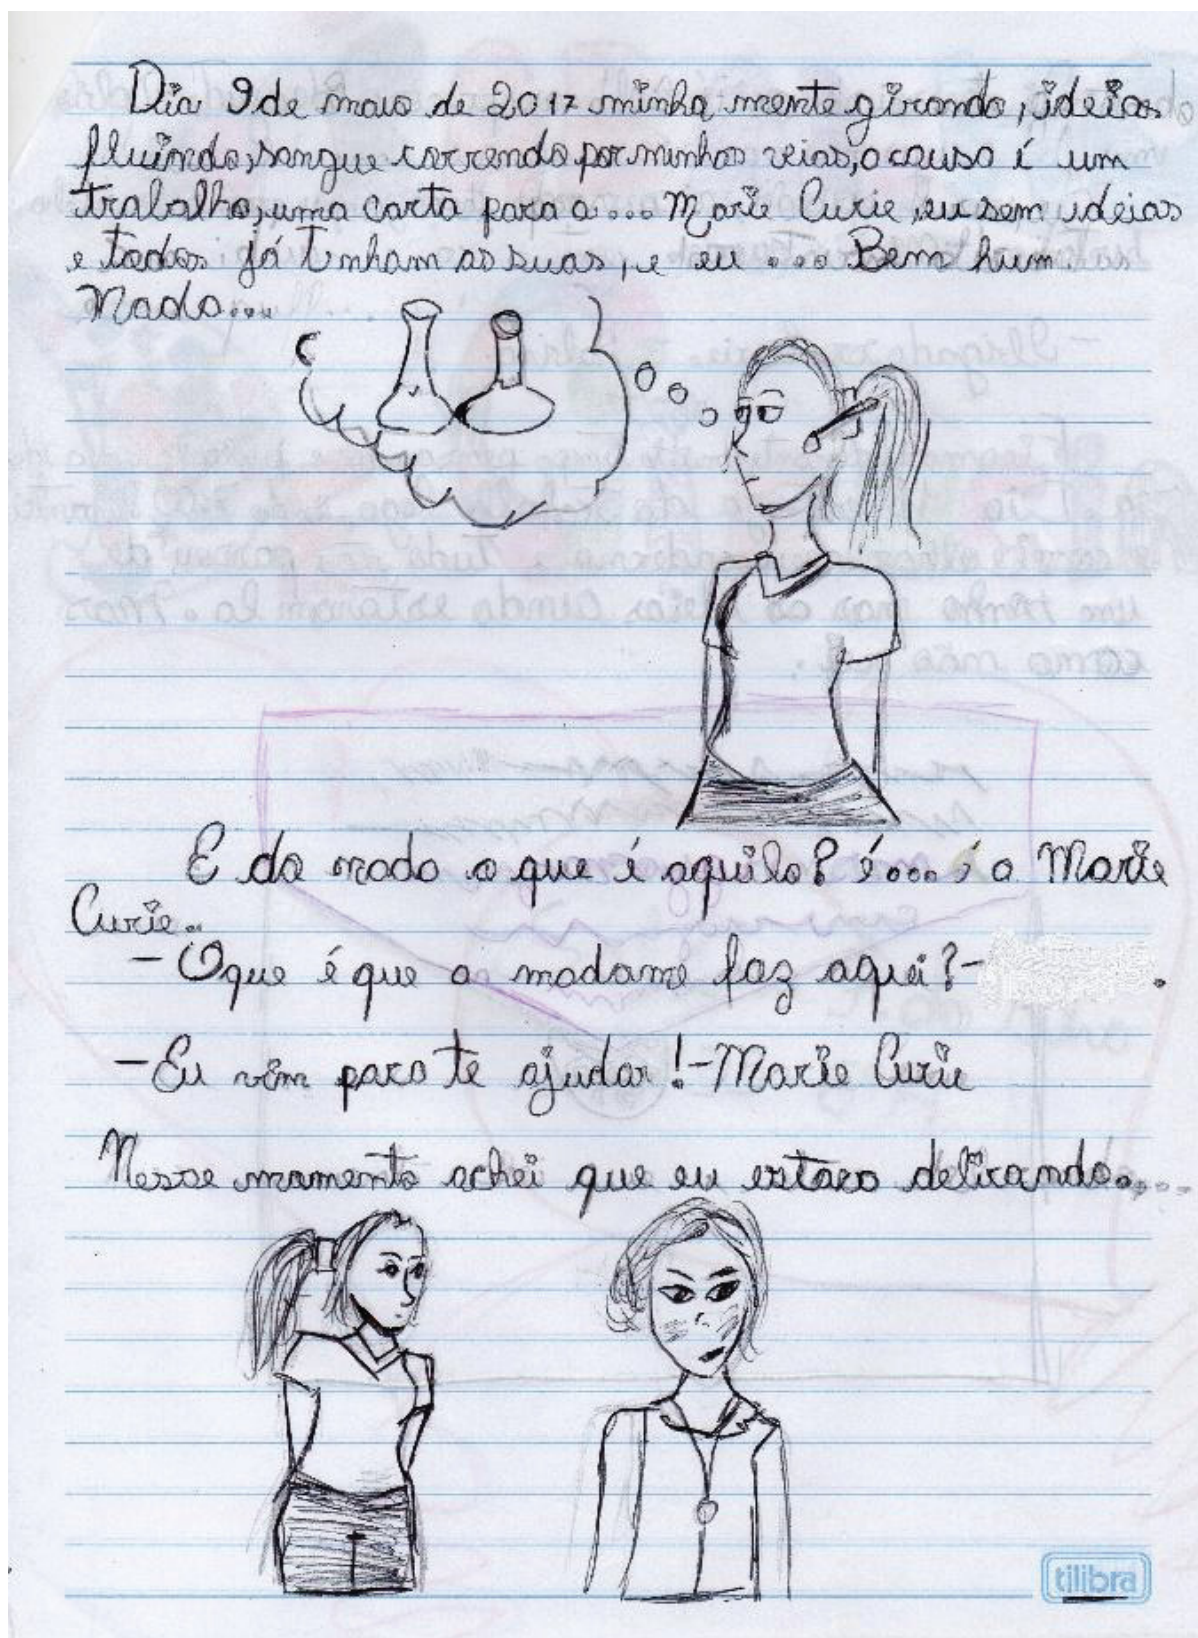 Dia 9 de maio de 2017 minha mente girando, ideias
fluindo, sangue correndo por minhas veias, a causa é um
trabalho, uma carta para a... Marie Curie, eu sem ideias
e todos já tinham as suas, e eu ... Bem hum.
Nada...
E do nada o que é aquilo? é... é a Marie
Curie..
- O que é que a madame faz aqui? -
- Eu vim para te ajudar! - Marie Curie
Nesse momento achei que eu estava delirando.....
tilibra